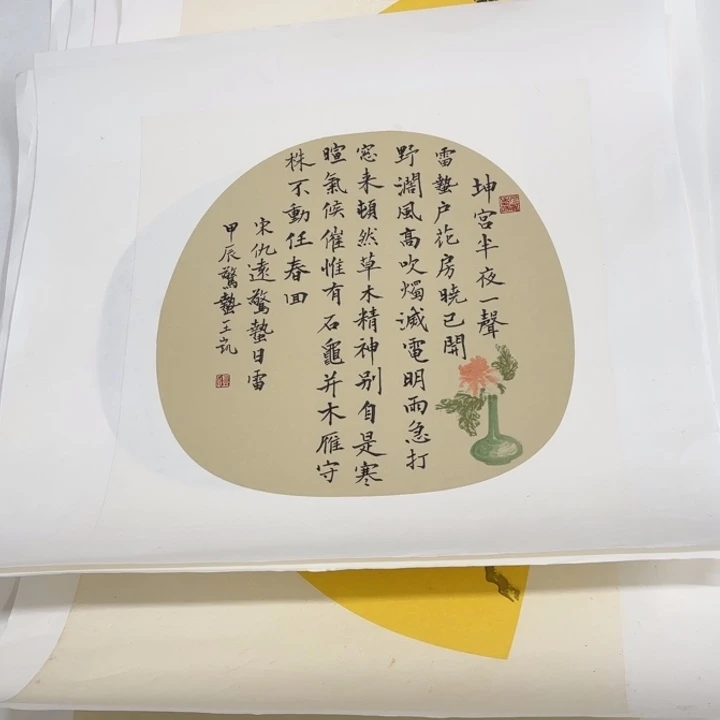 坤宫半夜一聲
雷蟄户花房曉已開
野濶風高吹燭滅電明雨急打
窓来頓然草木精神别自是寒
暄氣候催惟有石龜并木雁守
株不動任春回
宋仇遠驚蟄日雷
甲辰驚蟄王凱